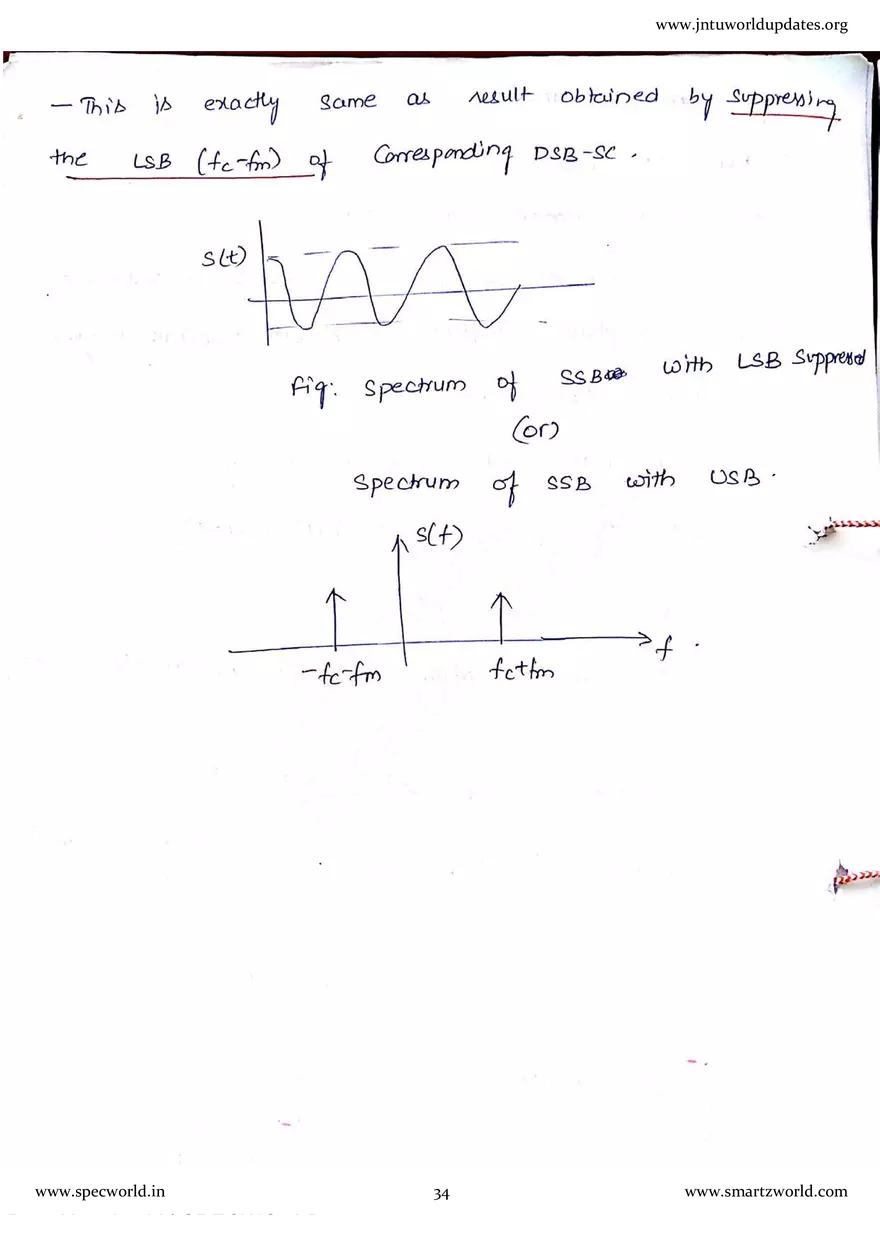 www.jntuworldupdates.org
– This is exactly same as result obtained by suppressing
the LSB (fc-fm) of Corresponding DSB-SC .
S(t)
Fig: Spectrum of SSB with LSB Suppressed
(or)
Spectrum of SSB with USB .
S(f)
-fc-fm fc+fm f .
www.specworld.in 34 www.smartzworld.com